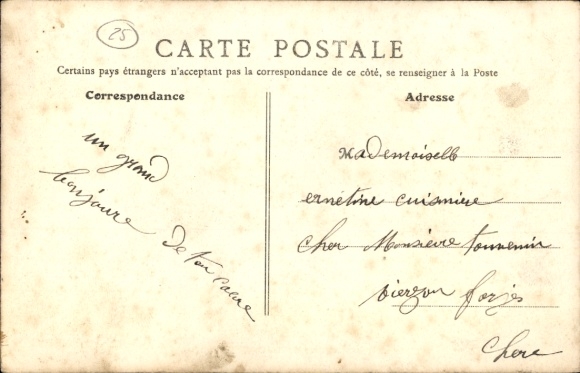 25
CARTE POSTALE
Certains pays étrangers n'acceptant pas la correspondance de ce côté, se renseigner à la Poste
Correspondance
Adresse
un grand
bonjoure
de ton
Mademoiselle
ernetine cuisniere
cher Monsieure tourvenin
vierzon forges
chere